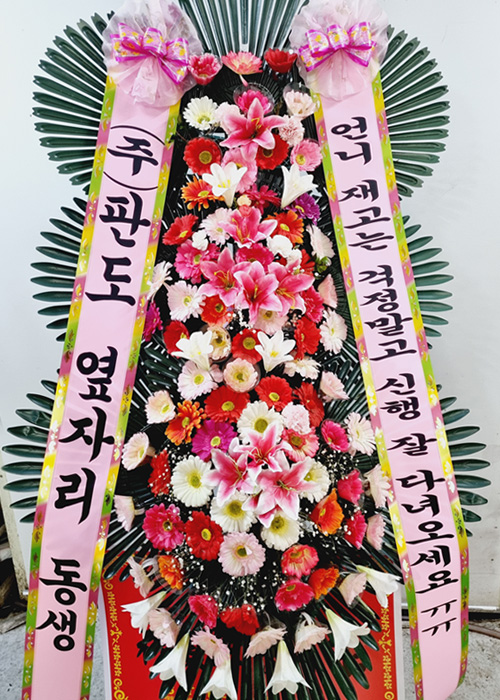 (주)판도 옆자리 동생
언니 재고는 걱정말고 신행 잘 다녀오세요 ㅠㅠ